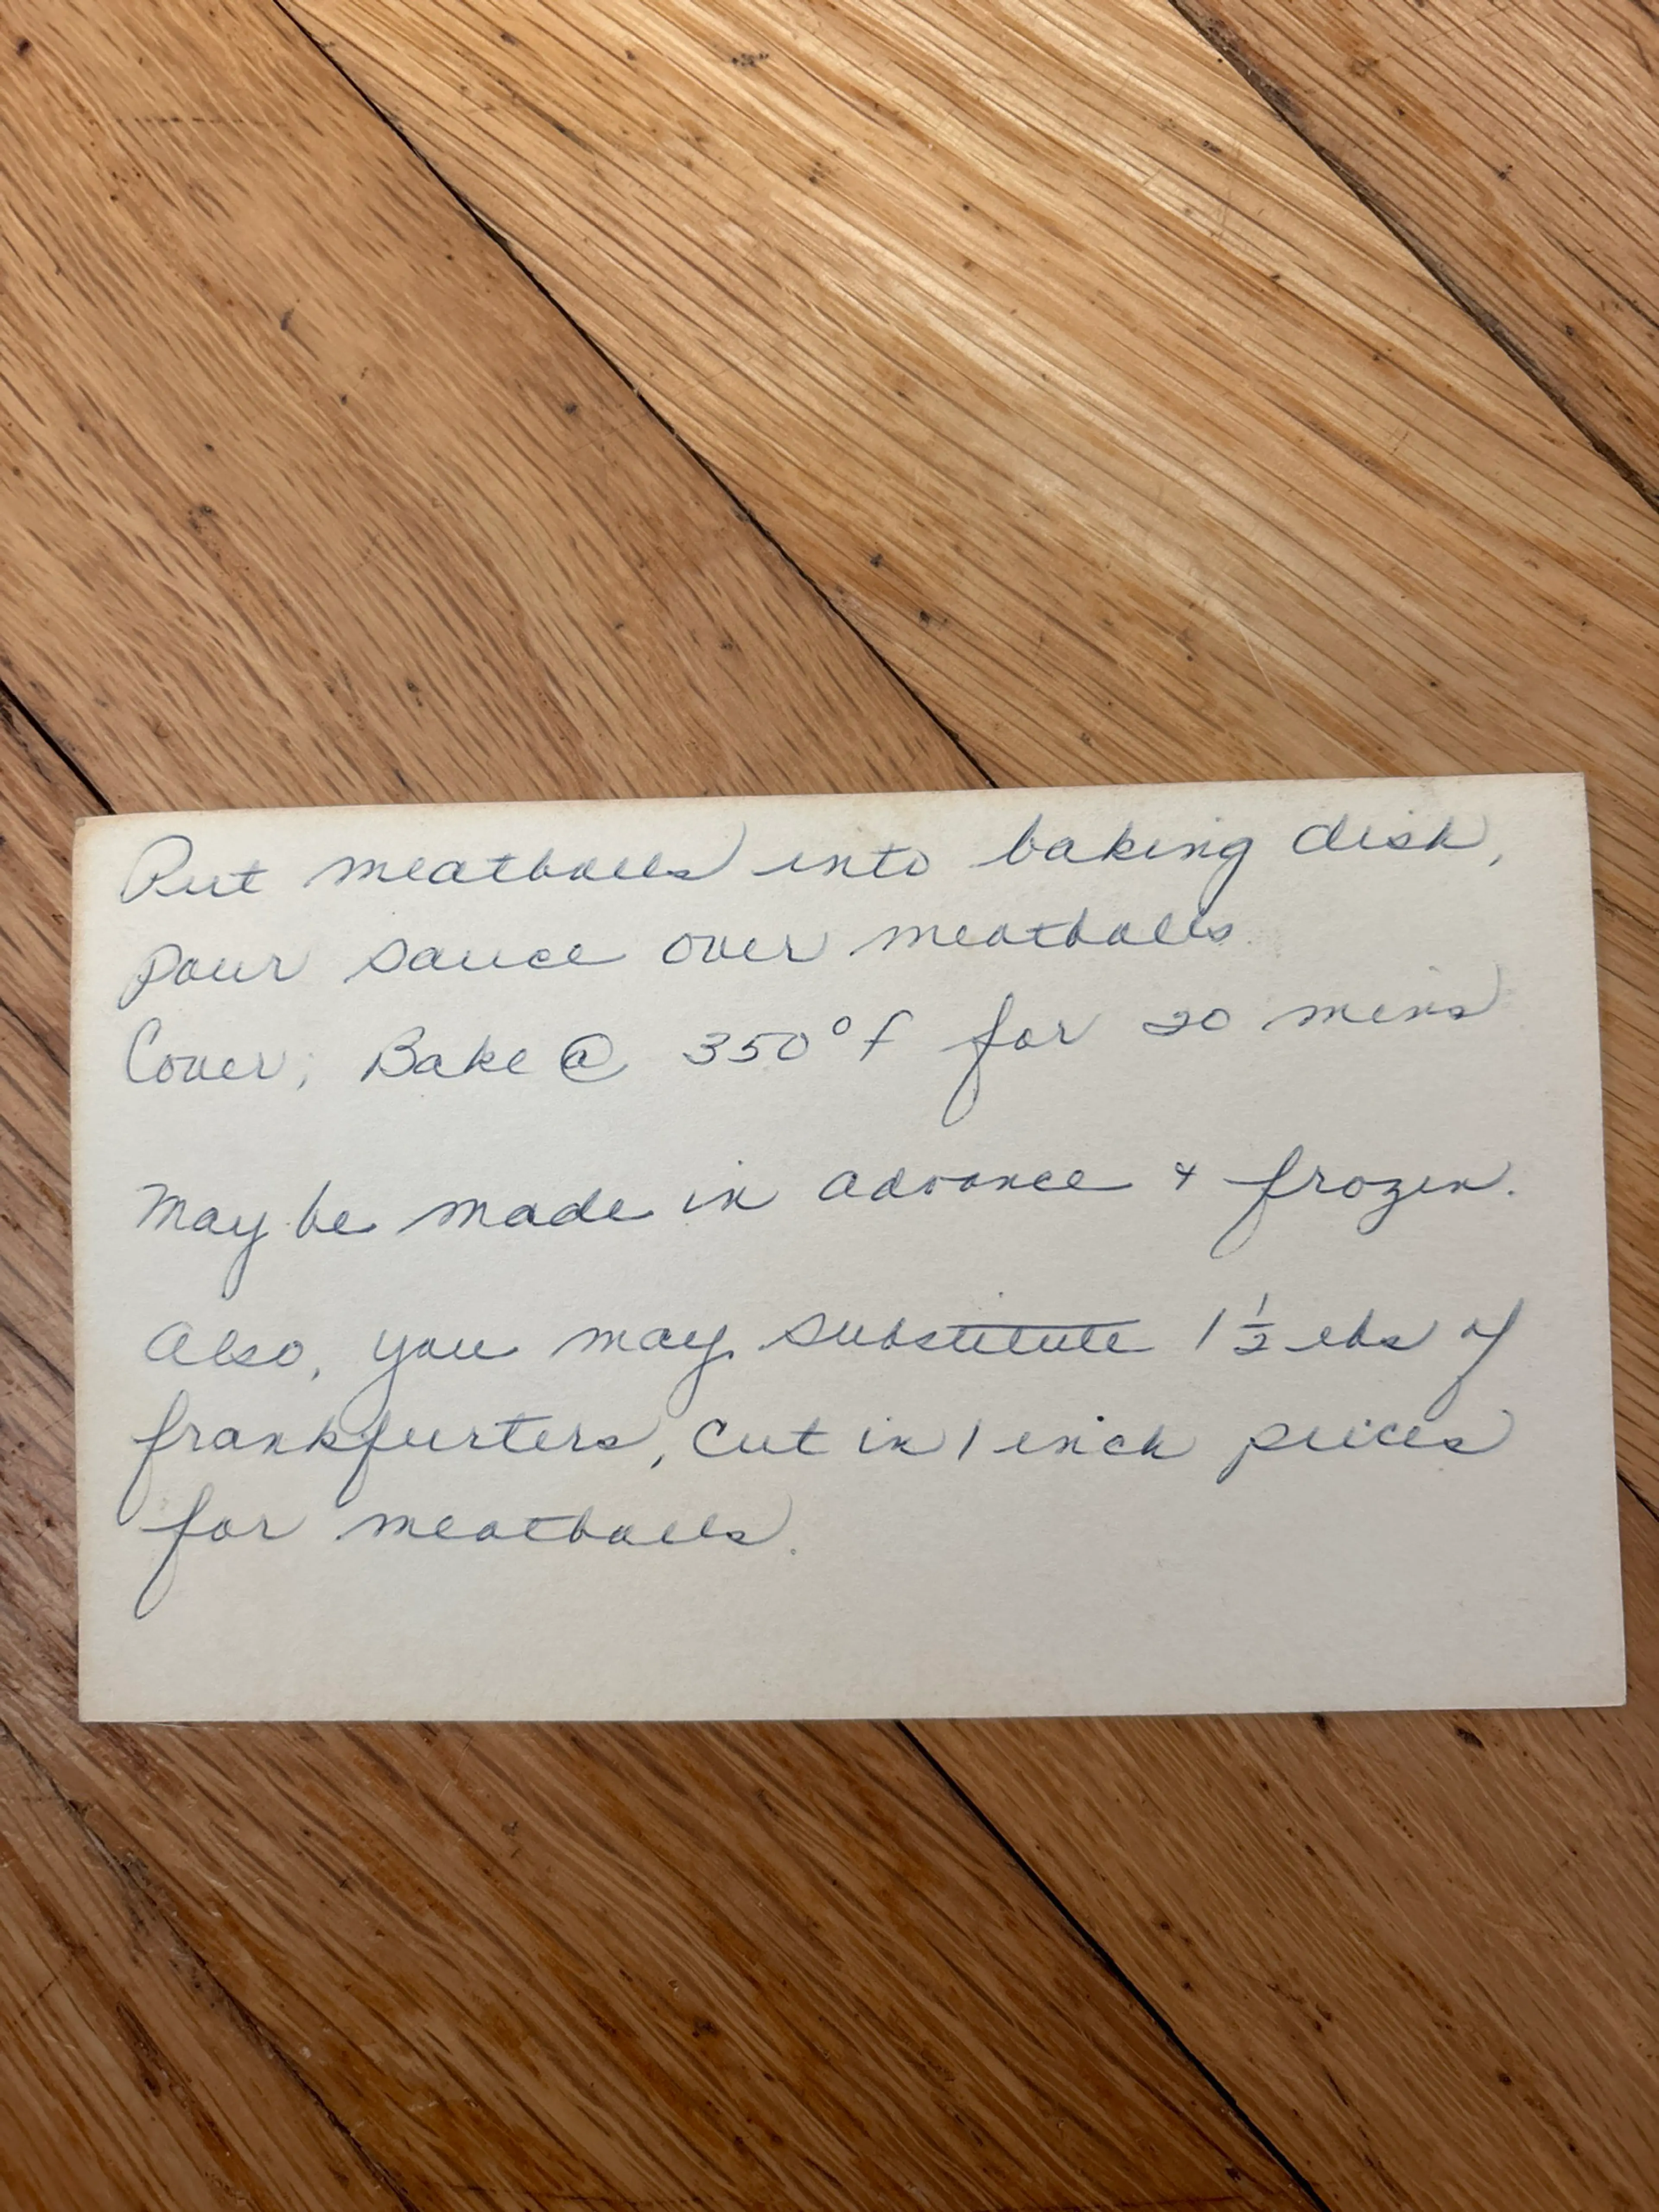 Put meatballs into baking dish,
pour sauce over meatballs.
Cover; Bake @ 350°f for 20 mins
May be made in advance & frozen.
Also, you may substitute 1 1/2 lbs of
frankfurters, cut in 1 inch pieces
for meatballs.